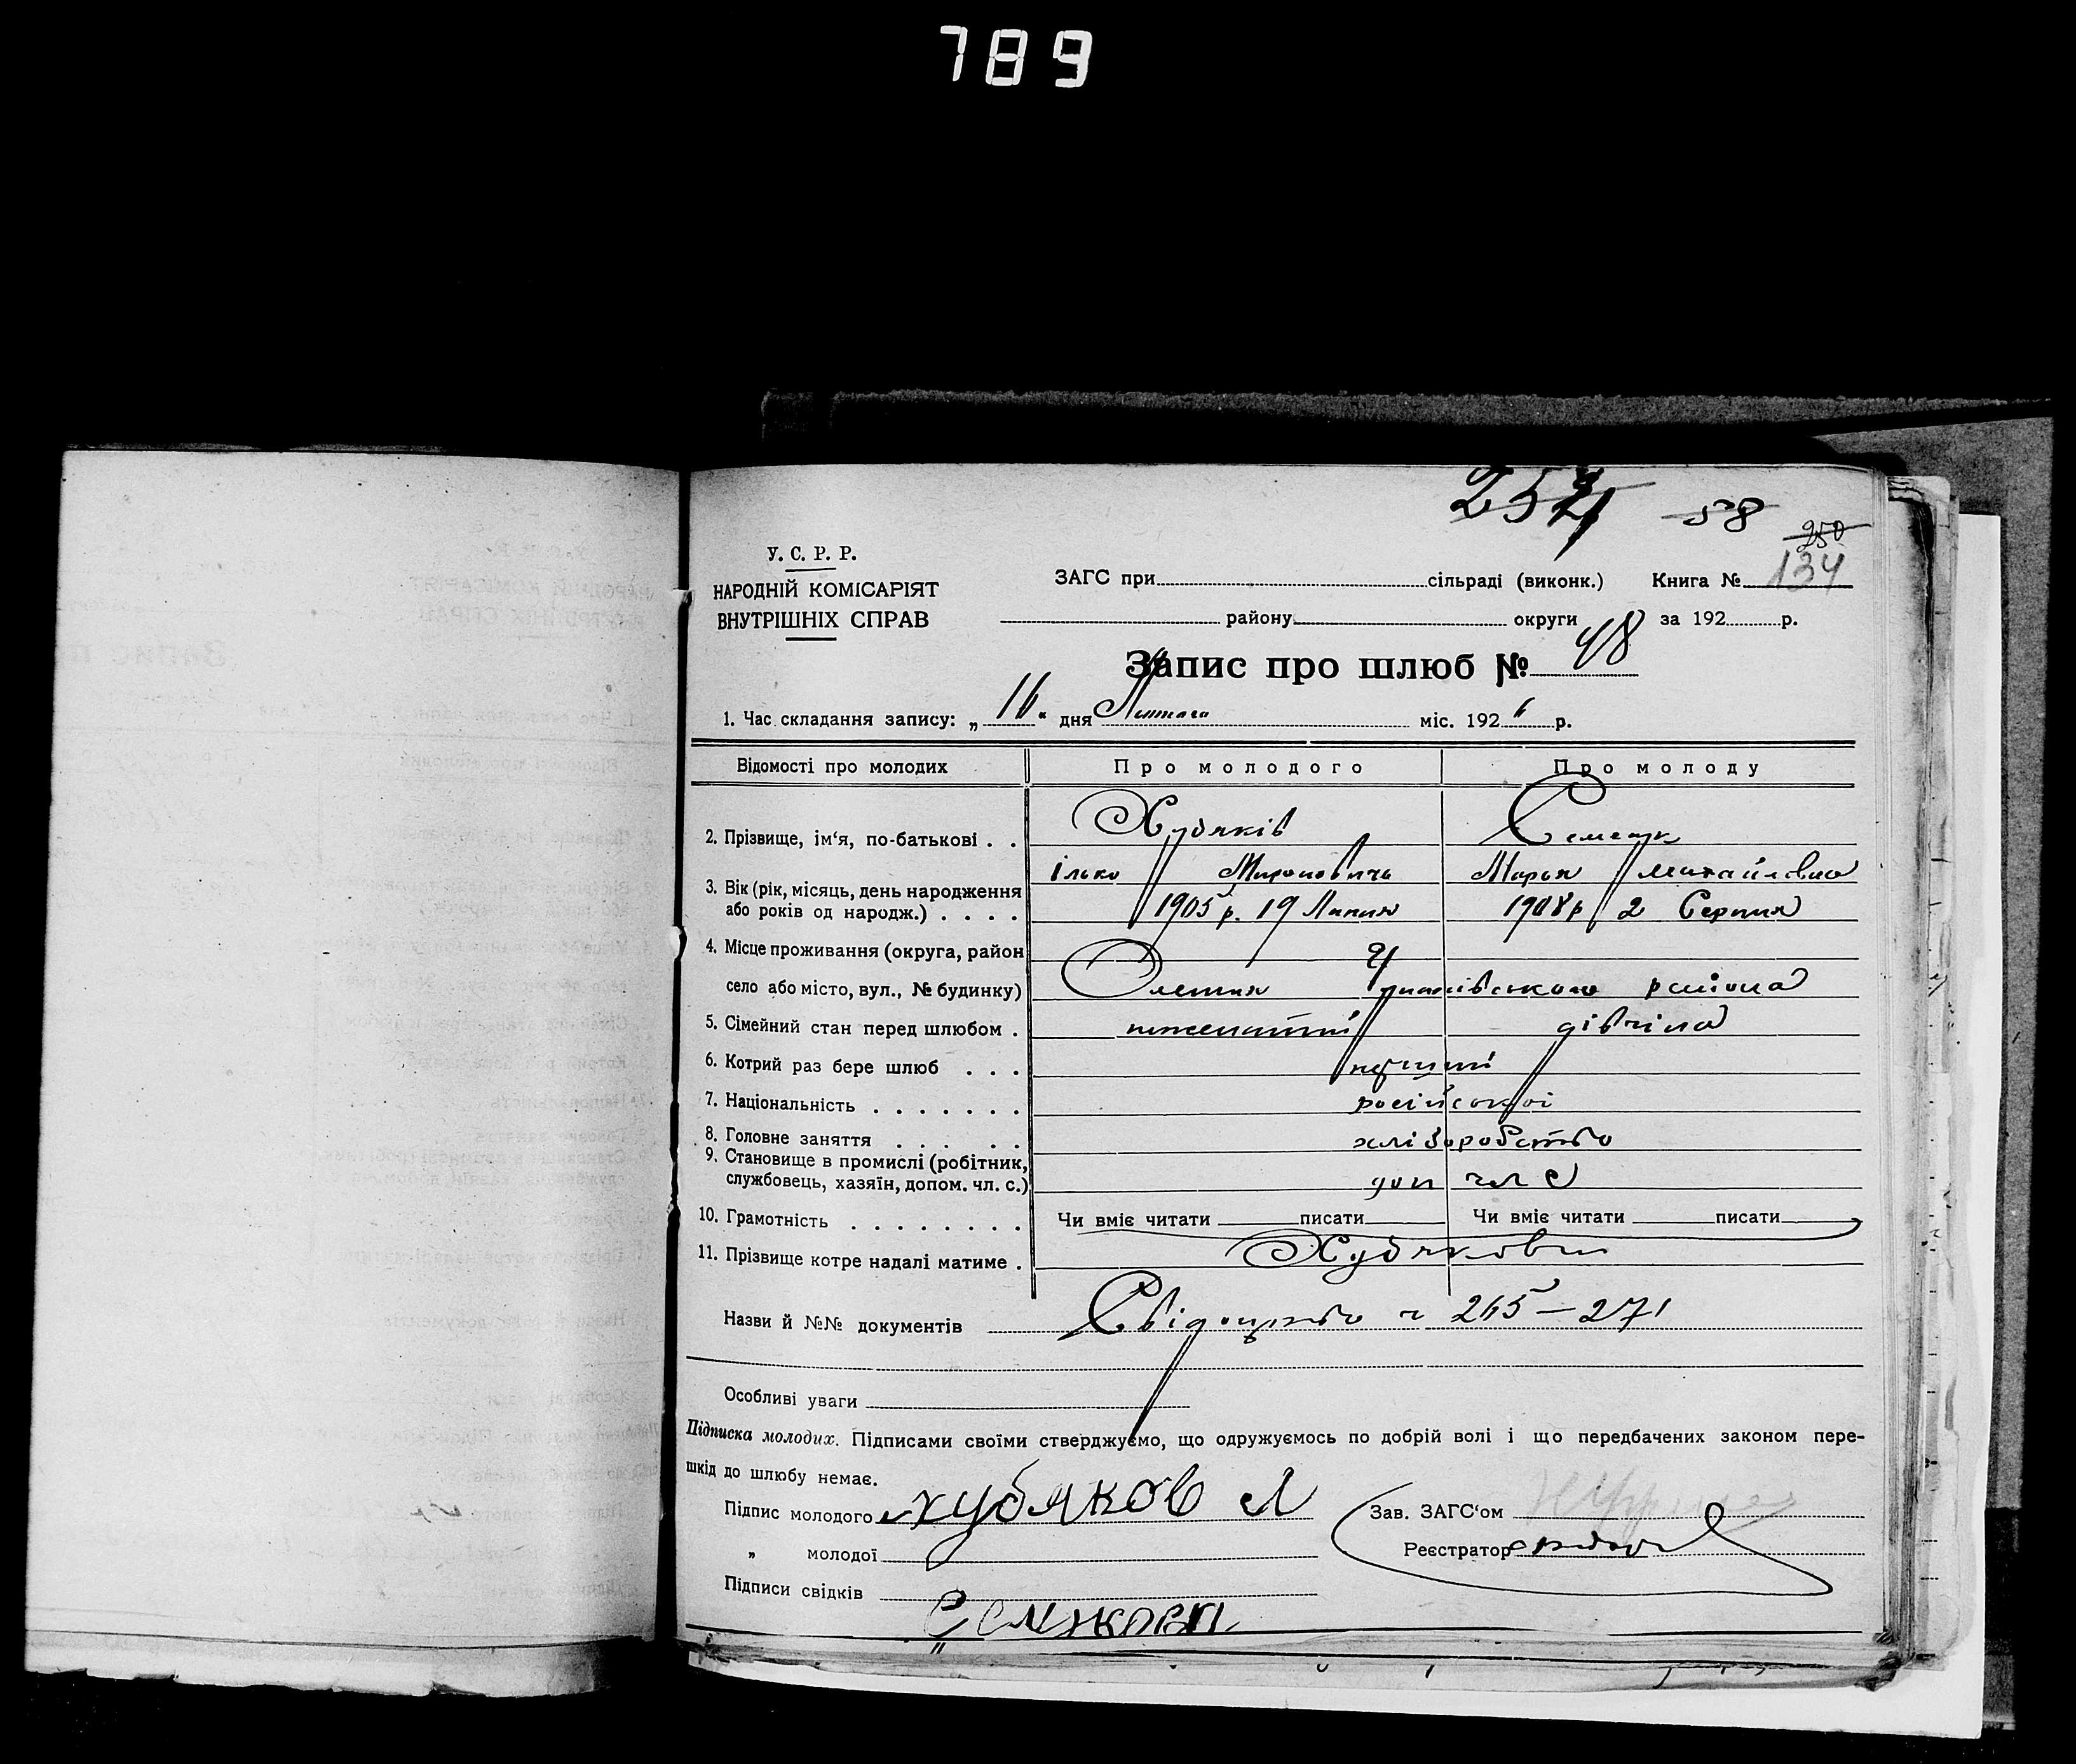 789
257 58
250
У. С. Р. Р.
НАРОДНІЙ КОМІСАРІЯТ
ВНУТРІШНІХ СПРАВ
ЗАГС при сільраді (виконк.) Книга № 134
району округи за 192 р.
Запис про шлюб № 48
1. Час складання запису: „ 16 “ дня Лютого міс. 1926 р.
Відомості про молодих Про молодого Про молоду
2. Прізвище, ім‘я, по-батькові . . Худяків Семеук
Ілько Миронович Марья Михайловна
3. Вік (рік, місяць, день народження
або років од народж.) . . . . 1905 р. 19 Липня 1908 р 2 Серпня
4. Місце проживання (округа, район
село або місто, вул., № будинку) району
5. Сімейний стан перед шлюбом . нежинатий дівчина
6. Котрий раз бере шлюб . . . перший
7. Національність . . . . . . . російської
8. Головне заняття . . . . . хліборобство
9. Становище в промислі (робітник,
службовець, хазяїн, допом. чл. с.) доп чл с
10. Грамотність . . . . . . . . Чи вміє читати писати Чи вміє читати писати
11. Прізвище котре надалі матиме . Худякови
Назви й №№ документів Свідоцтво ч 265–271
Особливі уваги
Підписка молодих. Підписами своїми стверджуємо, що одружуємось по добрій волі і що передбачених законом пере-
шкід до шлюбу немає.
Підпис молодого Худяков И Зав. ЗАГС‘ом
„ молодої Реєстратор
Підписи свідків